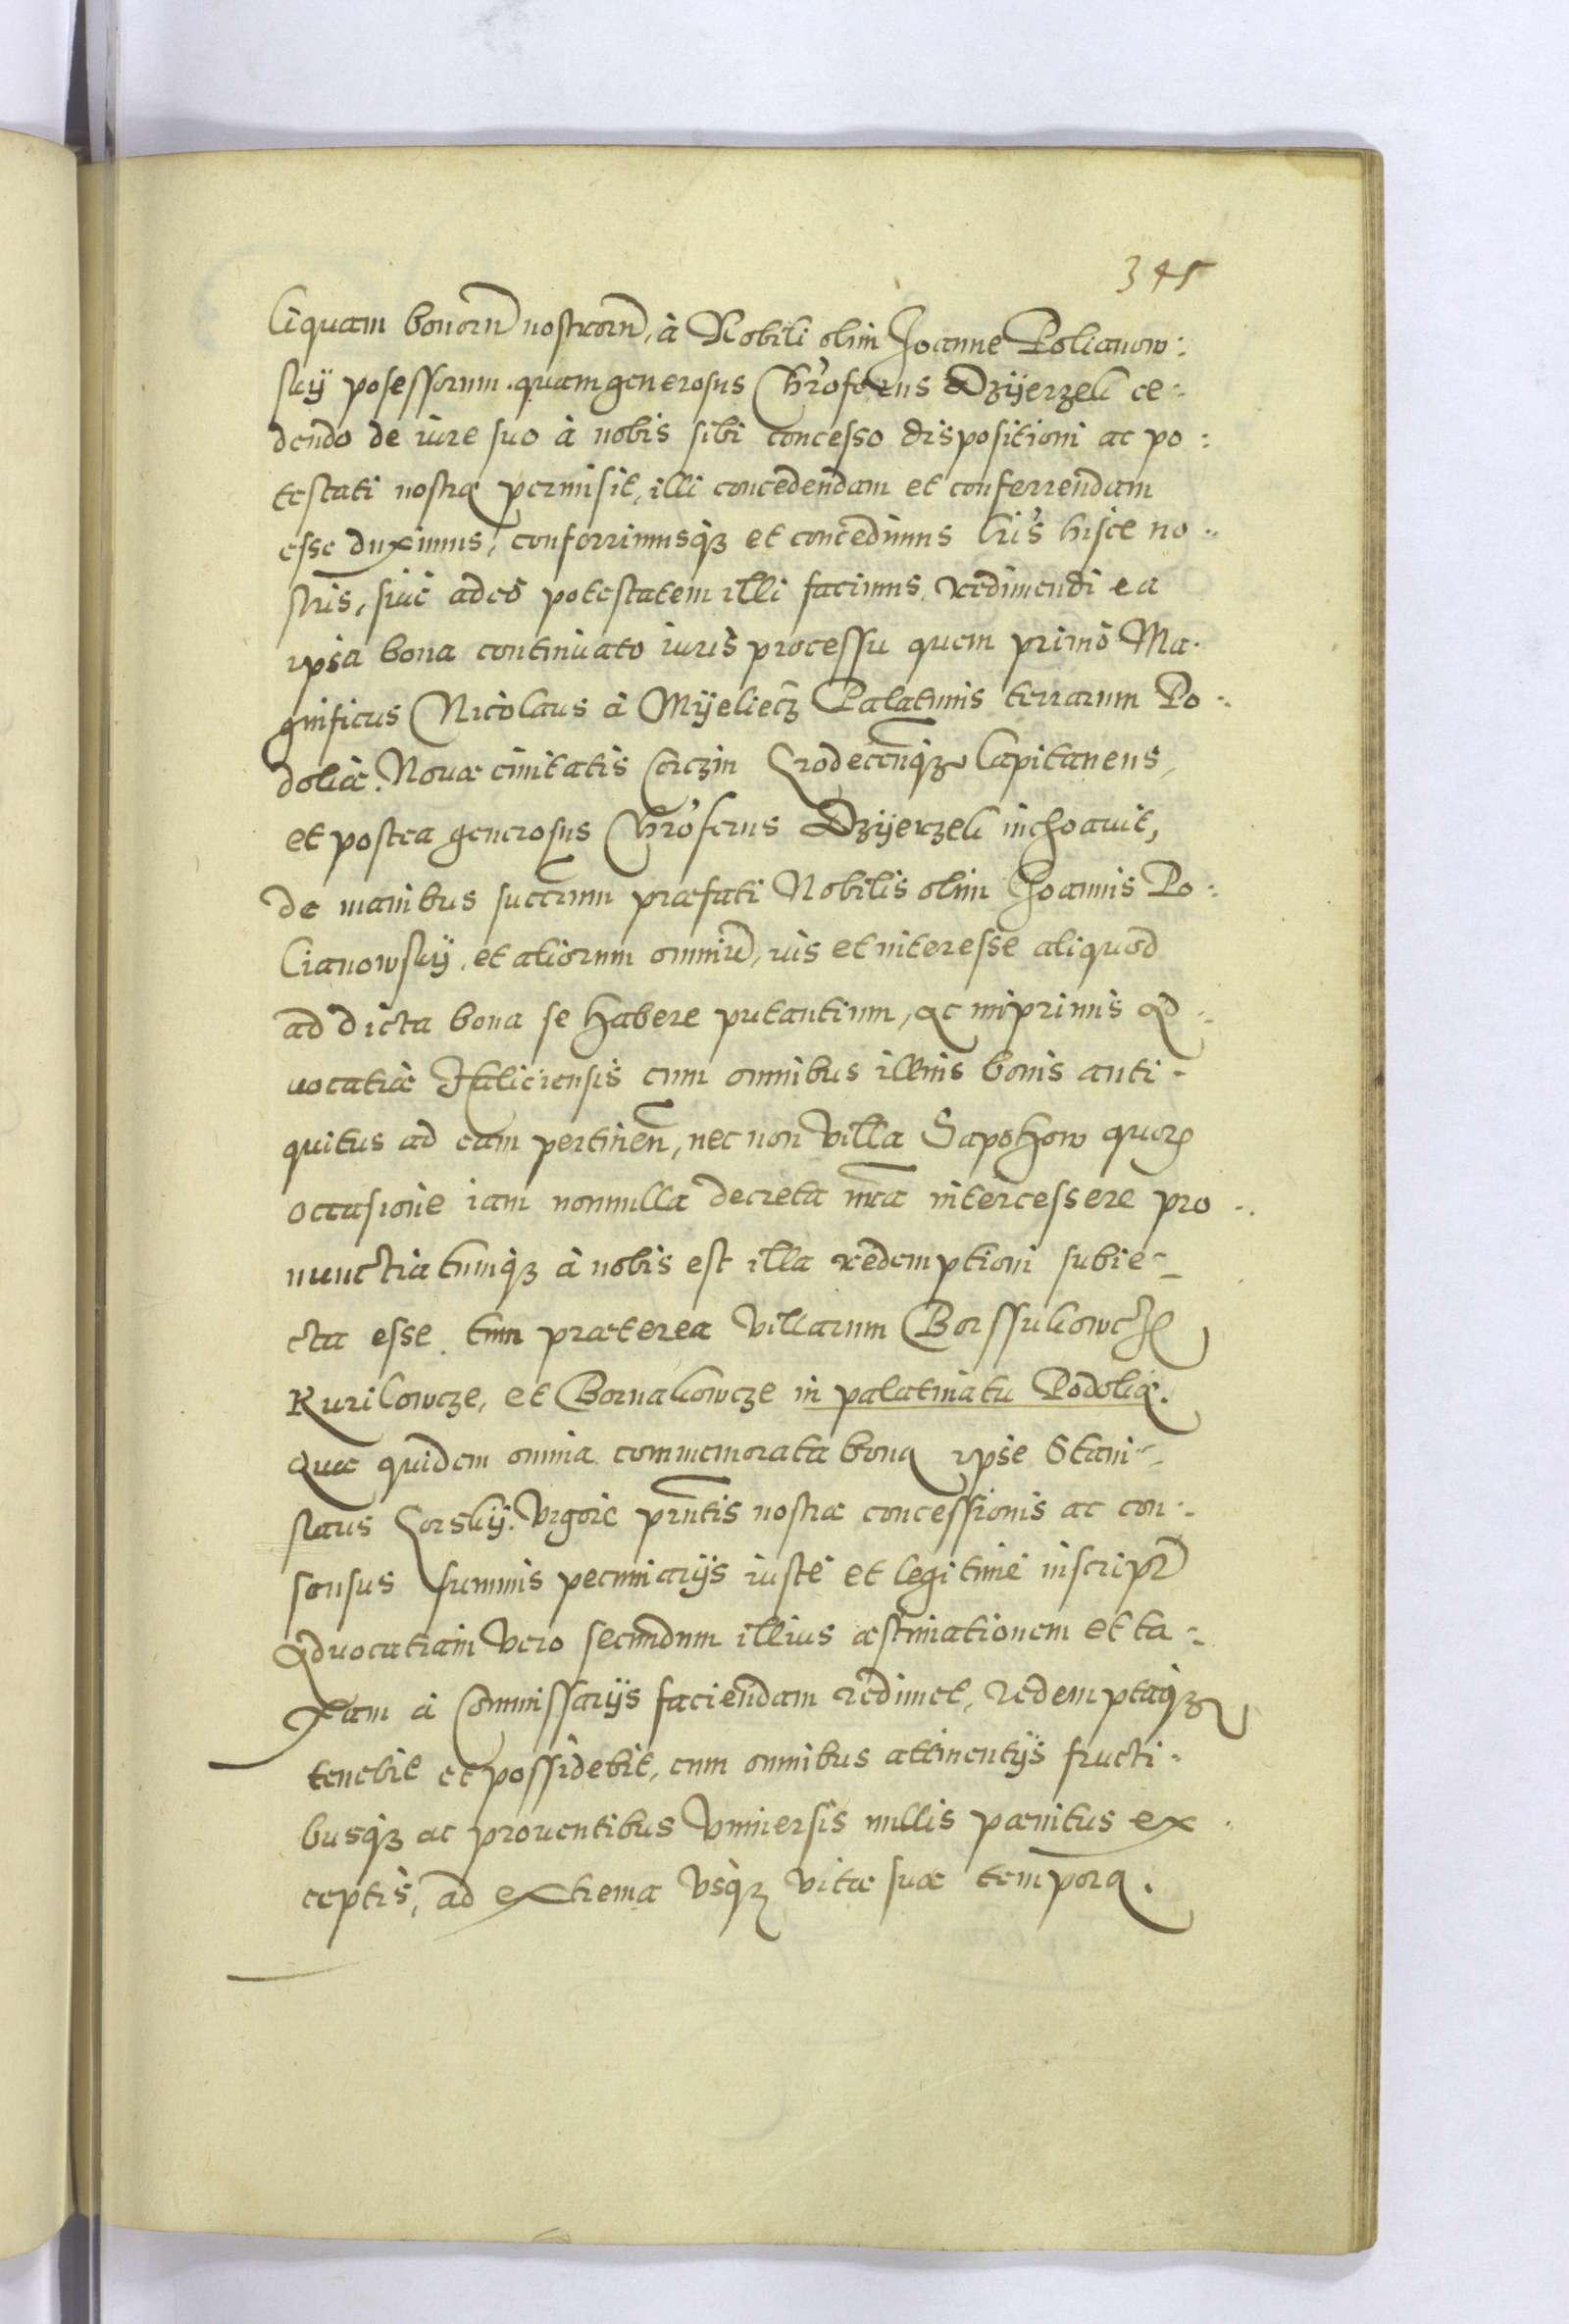 345
liquam bonoru͞ nostroru͞, à Nobili olim Joanne Polianow:
sky posessorum. quam generosus Chrõferus Dzÿerzek ce-
dendo de iure suo à nobis sibi concesso dispositioni ac po:
testati nostræ permisit, illi concedendam et conferrendam
esse duximus, conferrimusqꝫ et concedimus lri's hisce no-
stris, siue adeò potestatem illi facimus, redimendi ea
ipsa bona continuato iuris processu quem primò Ma-
gnificus Nicolaus à Mÿeliecz Palatinus terrarum Po-
doliæ. Nouæ ciuitatis Corczin Grodecen̅qꝫ Capitaneus,
et postea generosus Chrõferus Dzÿerzek inchoauit,
de manibus succrum̅ præfati Nobilis olim Joannis Po:
lianowsky, et aliorum omniu͞, ius et interesse aliquod
ad dicta bona se habere putantium, ac inprimis Ad-
uocatiæ Haliciensis cum omnibus illius bonis anti-
quitus ad eam pertinen̅, nec non villa Sapohow quorꝫ
occasione iam nonnulla decreta nr̅a intercessere pro-
nunctiatumqꝫ à nobis est illa redemptioni subie-
cta esse. tum præterea villarum Borssukowcze
Kurilowcze, et Bornakowcze in palatinatu Podoliæ.
Quæ quidem omnia commemorata bona ipse Stani-
slaus Gorskÿ. vigore prn̅tis nostræ concessionis ac con-
sensus summis pecuniarijs iustè et legitimè inscript͞
Aduocatiam vero secundum illius æstimationem et ta-
xam à Commissarijs faciendam redimet, redemptaqꝫ
tenebit et possidebit, cum omnibus attinentijs fructi-
busqꝫ ac prouentibus vniuersis nullis pænitus ex
ceptis, ad extrema vsqꝫ vitæ suæ tempora.